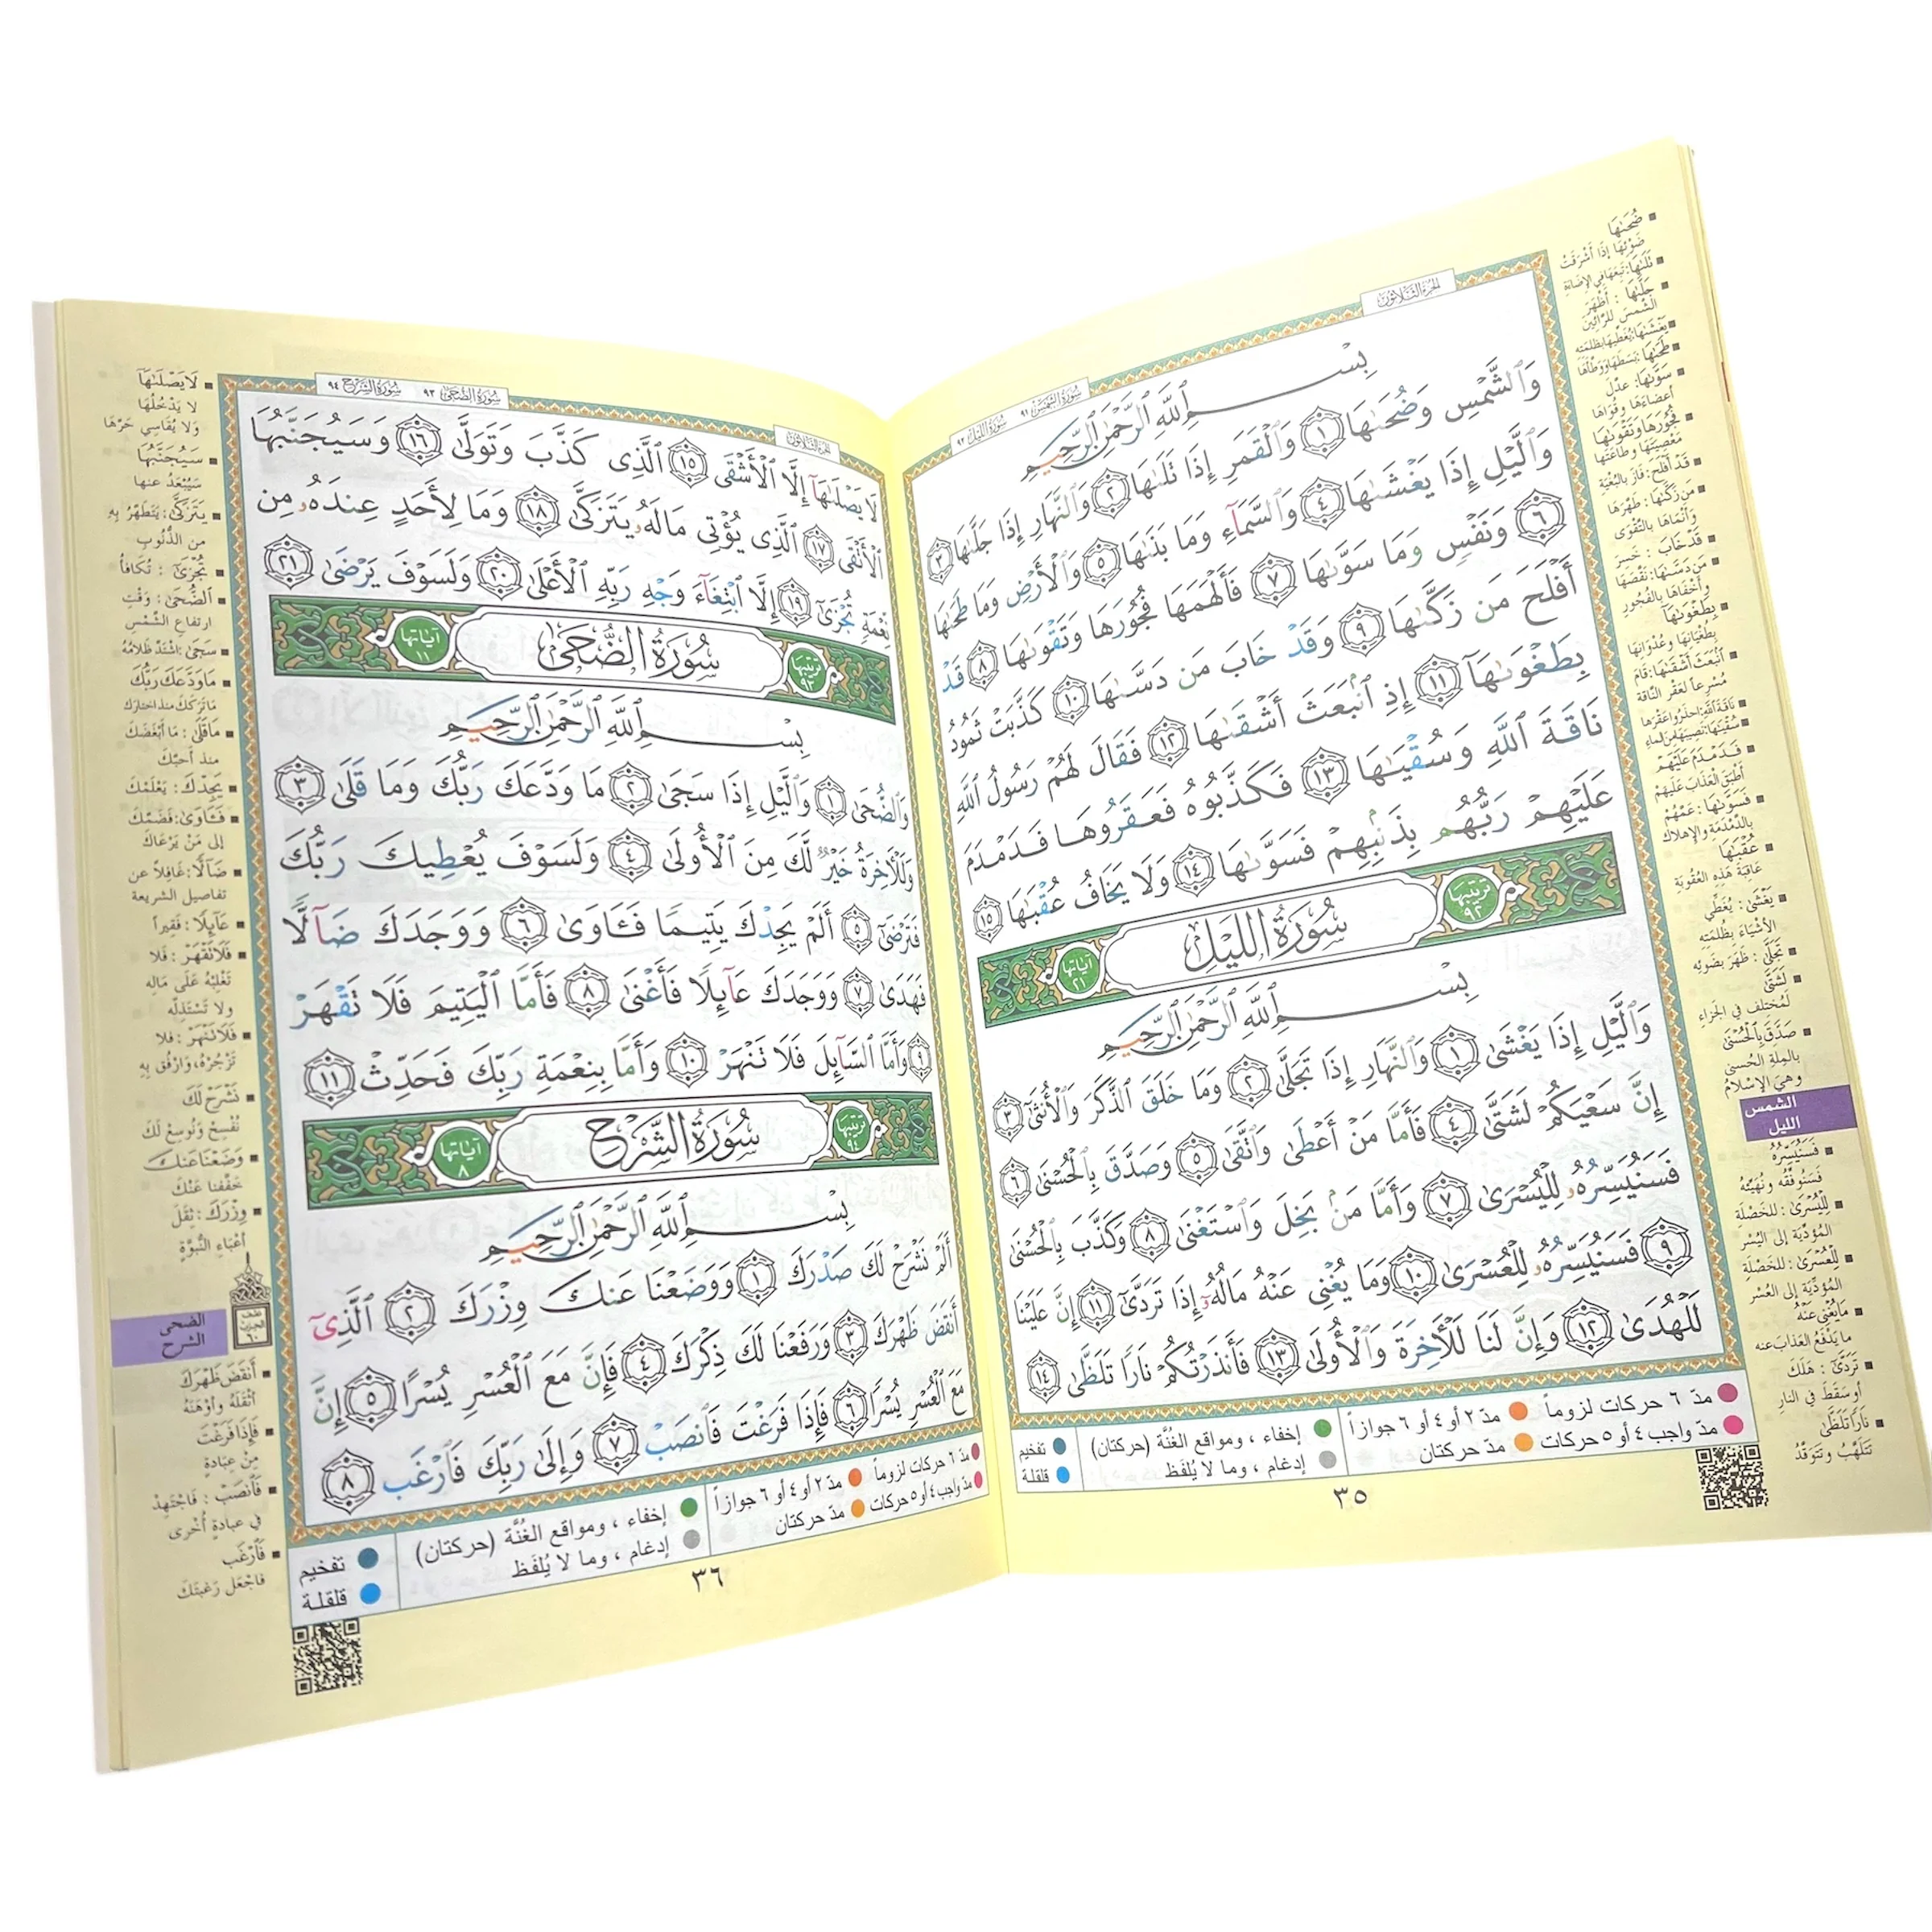 الجزء الثلاثون
سورة الشمس ٩١ سورة الليل ٩٢
بِسْمِ ٱللَّهِ ٱلرَّحْمَٰنِ ٱلرَّحِيمِ
وَٱلشَّمْسِ وَضُحَىٰهَا ١ وَٱلْقَمَرِ إِذَا تَلَىٰهَا ٢ وَٱلنَّهَارِ إِذَا جَلَّىٰهَا ٣
وَٱلَّيْلِ إِذَا يَغْشَىٰهَا ٤ وَٱلسَّمَآءِ وَمَا بَنَىٰهَا ٥ وَٱلْأَرْضِ وَمَا طَحَىٰهَا
٦ وَنَفْسٍ وَمَا سَوَّىٰهَا ٧ فَأَلْهَمَهَا فُجُورَهَا وَتَقْوَىٰهَا ٨ قَدْ
أَفْلَحَ مَن زَكَّىٰهَا ٩ وَقَدْ خَابَ مَن دَسَّىٰهَا ١٠ كَذَّبَتْ ثَمُودُ
بِطَغْوَىٰهَآ ١١ إِذِ ٱنۢبَعَثَ أَشْقَىٰهَا ١٢ فَقَالَ لَهُمْ رَسُولُ ٱللَّهِ
نَاقَةَ ٱللَّهِ وَسُقْيَٰهَا ١٣ فَكَذَّبُوهُ فَعَقَرُوهَا فَدَمْدَمَ
عَلَيْهِمْ رَبُّهُم بِذَنۢبِهِمْ فَسَوَّىٰهَا ١٤ وَلَا يَخَافُ عُقْبَٰهَا ١٥
ترتيبها ٩٢ سُورَةُ اللَّيْلِ آياتها ٢١
بِسْمِ ٱللَّهِ ٱلرَّحْمَٰنِ ٱلرَّحِيمِ
وَٱلَّيْلِ إِذَا يَغْشَىٰ ١ وَٱلنَّهَارِ إِذَا تَجَلَّىٰ ٢ وَمَا خَلَقَ ٱلذَّكَرَ وَٱلْأُنثَىٰٓ ٣
إِنَّ سَعْيَكُمْ لَشَتَّىٰ ٤ فَأَمَّا مَنْ أَعْطَىٰ وَٱتَّقَىٰ ٥ وَصَدَّقَ بِٱلْحُسْنَىٰ ٦
فَسَنُيَسِّرُهُۥ لِلْيُسْرَىٰ ٧ وَأَمَّا مَنۢ بَخِلَ وَٱسْتَغْنَىٰ ٨ وَكَذَّبَ بِٱلْحُسْنَىٰ
٩ فَسَنُيَسِّرُهُۥ لِلْعُسْرَىٰ ١٠ وَمَا يُغْنِى عَنْهُ مَالُهُۥٓ إِذَا تَرَدَّىٰٓ ١١ إِنَّ عَلَيْنَا
لَلْهُدَىٰ ١٢ وَإِنَّ لَنَا لَلْـَٔاخِرَةَ وَٱلْأُولَىٰ ١٣ فَأَنذَرْتُكُمْ نَارًا تَلَظَّىٰ ١٤
مدّ ٦ حركات لزوماً مدّ ٢ أو ٤ أو ٦ جوازاً إخفاء ، ومواقع الغُنَّة (حركتان) تفخيم
مدّ واجب ٤ أو ٥ حركات مدّ حركتان إدغام ، وما لا يُلفَظ قلقلة
٣٥
ضُحَىٰهَا
ضَوْئِهَا إذَا أَشْرَقَتْ
تَلَىٰهَا: تَبِعَهَا فِي الإِضَاءَةِ
جَلَّىٰهَا : أَظْهَرَ
الشَّمْسَ للرَّائِينَ
يَغْشَىٰهَا: يُغَطِّيهَا بِظُلْمَتِه
طَحَىٰهَا: بَسَطَهَا وَوَطَّأَهَا
سَوَّىٰهَا: عدَّلَ
أعضاءَها وقُوَاهَا
فُجُورَهَا وَتَقْوَىٰهَا
مَعْصِيَتَهَا وطَاعَتَهَا
قَدْ أَفْلَحَ: فَازَ بالبُغْيَةِ
مَن زَكَّىٰهَا: طَهَّرَهَا
وَأَنْمَاهَا بالتَّقْوَى
قَدْ خَابَ : خَسِرَ
مَن دَسَّىٰهَا: نَقَّصَهَا
وأَخْفَاهَا بالفُجُورِ
بِطَغْوَىٰهَآ
بِطُغْيَانِهَا وَعُدْوَانِهَا
ٱنۢبَعَثَ أَشْقَىٰهَا: قَامَ
مُسْرِعاً لعَقْرِ النَّاقَةِ
نَاقَةَ ٱللَّهِ: احذَرُوا عَقْرَهَا
سُقْيَٰهَا: نَصِيبَهَا مِنَ المَاءِ
فَدَمْدَمَ عَلَيْهِمْ
أَطْبَقَ العَذَابَ عَلَيْهِمْ
فَسَوَّىٰهَا : عَمَّهُمْ
بالدَّمْدَمَةِ والإِهلاكِ
عُقْبَٰهَا
عَاقِبَةَ هَذِهِ العُقُوبَةِ
يَغْشَىٰ : يُغَطِّي
الأَشْيَاءَ بِظُلمَتِهِ
تَجَلَّىٰ : ظَهَرَ بِضَوئِهِ
لَشَتَّىٰ
لَمُختلِف في الجَزاءِ
صَدَّقَ بِٱلْحُسْنَىٰ
بالمِلةِ الحُسنى
وهي الإِسْلامُ
الشمس
الليل
فَسَنُيَسِّرُهُ
فَسَنُوفِّقُه ونُهَيِّئُهُ
لِلْيُسْرَىٰ: للخَصْلَةِ
المُؤدِّيَةِ إلى اليُسْرِ
لِلْعُسْرَىٰ: للخَصْلَةِ
المُؤدِّيَةِ إلى العُسْرِ
مَا يُغْنِى عَنْهُ
ما يَدْفَعُ العَذَابَ عنه
تَرَدَّىٰٓ : هَلَكَ
أو سَقَطَ في النارِ
نَارًا تَلَظَّىٰ
تَتَلَهَّبُ وتَتَوَقَّدُ
الجزء الثلاثون
سورة الضحى ٩٣ سورة الشرح ٩٤
لَا يَصْلَىٰهَآ إِلَّا ٱلْأَشْقَى ١٥ ٱلَّذِى كَذَّبَ وَتَوَلَّىٰ ١٦ وَسَيُجَنَّبُهَا
ٱلْأَتْقَى ١٧ ٱلَّذِى يُؤْتِى مَالَهُۥ يَتَزَكَّىٰ ١٨ وَمَا لِأَحَدٍ عِندَهُۥ مِن
نِّعْمَةٍ تُجْزَىٰٓ ١٩ إِلَّا ٱبْتِغَآءَ وَجْهِ رَبِّهِ ٱلْأَعْلَىٰ ٢٠ وَلَسَوْفَ يَرْضَىٰ ٢١
ترتيبها ٩٣ سُورَةُ الضُّحَىٰ آياتها ١١
بِسْمِ ٱللَّهِ ٱلرَّحْمَٰنِ ٱلرَّحِيمِ
وَٱلضُّحَىٰ ١ وَٱلَّيْلِ إِذَا سَجَىٰ ٢ مَا وَدَّعَكَ رَبُّكَ وَمَا قَلَىٰ ٣
وَلَلْـَٔاخِرَةُ خَيْرٌ لَّكَ مِنَ ٱلْأُولَىٰ ٤ وَلَسَوْفَ يُعْطِيكَ رَبُّكَ
فَتَرْضَىٰٓ ٥ أَلَمْ يَجِدْكَ يَتِيمًا فَـَٔاوَىٰ ٦ وَوَجَدَكَ ضَآلًّا
فَهَدَىٰ ٧ وَوَجَدَكَ عَآئِلًا فَأَغْنَىٰ ٨ فَأَمَّا ٱلْيَتِيمَ فَلَا تَقْهَرْ
٩ وَأَمَّا ٱلسَّآئِلَ فَلَا تَنْهَرْ ١٠ وَأَمَّا بِنِعْمَةِ رَبِّكَ فَحَدِّثْ ١١
ترتيبها ٩٤ سُورَةُ الشَّرْحِ آياتها ٨
بِسْمِ ٱللَّهِ ٱلرَّحْمَٰنِ ٱلرَّحِيمِ
أَلَمْ نَشْرَحْ لَكَ صَدْرَكَ ١ وَوَضَعْنَا عَنكَ وِزْرَكَ ٢ ٱلَّذِىٓ
أَنقَضَ ظَهْرَكَ ٣ وَرَفَعْنَا لَكَ ذِكْرَكَ ٤ فَإِنَّ مَعَ ٱلْعُسْرِ يُسْرًا ٥ إِنَّ
مَعَ ٱلْعُسْرِ يُسْرًا ٦ فَإِذَا فَرَغْتَ فَٱنصَبْ ٧ وَإِلَىٰ رَبِّكَ فَٱرْغَب ٨
مدّ ٦ حركات لزوماً مدّ ٢ أو ٤ أو ٦ جوازاً إخفاء ، ومواقع الغُنَّة (حركتان) تفخيم
مدّ واجب ٤ أو ٥ حركات مدّ حركتان إدغام ، وما لا يُلفَظ قلقلة
٣٦
لَا يَصْلَىٰهَآ
لا يَدْخُلُهَا
وَلا يُقَاسِي حَرَّهَا
سَيُجَنَّبُهَا
سَيُبْعَدُ عنها
يَتَزَكَّىٰ: يَتَطَهَّرُ بِهِ
من الذُّنُوبِ
تُجْزَىٰٓ : تُكَافَأُ
ٱلضُّحَىٰ : وَقْتِ
ارتفاعِ الشَّمْسِ
سَجَىٰ :اشْتَدَّ ظَلامُهُ
مَا وَدَّعَكَ رَبُّكَ
مَا تَرَكَكَ منذ اختارك
مَا قَلَىٰ : مَا أبْغَضَكَ
منذ أحبَّكَ
يَجِدْكَ : يَعْلَمْكَ
فَـَٔاوَىٰ: فَضَمَّكَ
إلى مَنْ يَرْعَاكَ
ضَآلًّا: غَافِلاً عن
تفاصيل الشريعة
عَآئِلًا : فَقِيراً
فَلَا تَقْهَرْ : فلا
تَغْلِبْهُ عَلَى مَالِهِ
ولا تَسْتَذِلَّه
فَلَا تَنْهَرْ : فلا
تَزْجُرْهُ، وَارْفُق بِهِ
نَشْرَحْ لَكَ
نُفْسِحْ وَنُوسِعْ لَكَ
وَضَعْنَا عَنكَ
خَفَّفْنا عَنْكَ
وِزْرَكَ : ثِقَلَ
أعْبَاءِ النُّبوَّةِ
نصف
الحزب
٦٠
الضحى
الشرح
أَنقَضَ ظَهْرَكَ
أثْقَلَهُ وأوْهَنَهُ
فَإِذَا فَرَغْتَ
مِنْ عِبَادَةٍ
فَٱنصَبْ : فَاجْتَهِدْ
في عبادةٍ أُخْرى
فَٱرْغَب
فاجْعَل رَغبتَكَ